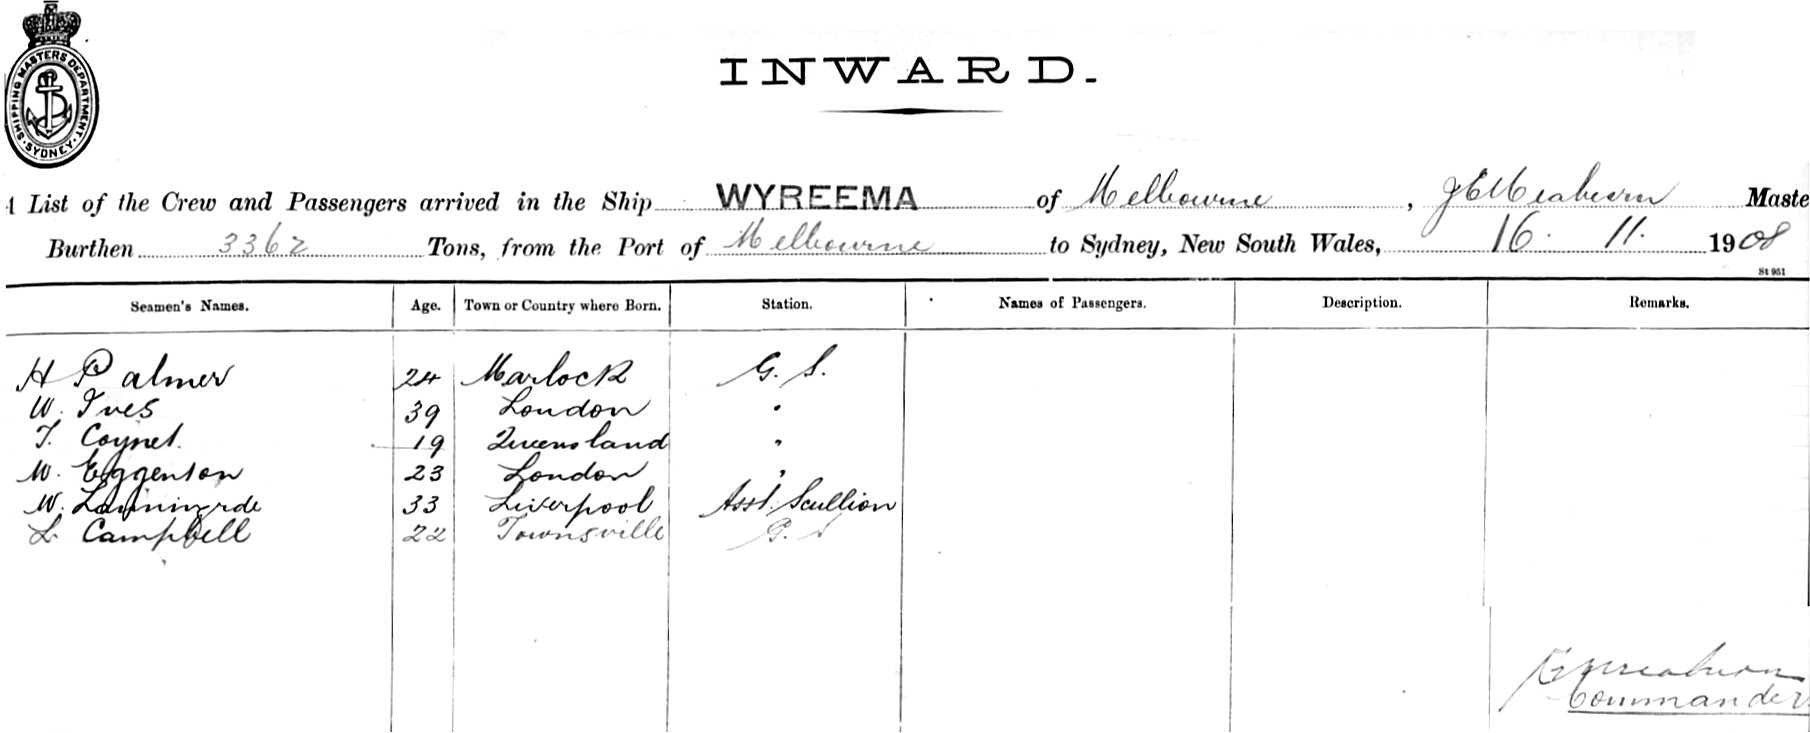 SHIPPING MASTERS DEPARTMENT
SYDNEY
INWARD.
A List of the Crew and Passengers arrived in the Ship WYREEMA of Melbourne, J E Meaburn Maste
Burthen 3362 Tons, from the Port of Melbourne to Sydney, New South Wales, 16. 11. 1908
St 951
Seamen's Names. Age. Town or Country where Born. Station. Names of Passengers. Description. Remarks.
H Palmer 24 Marlock G. S.
W. Ives 39 London "
T. Coynel. 19 Queensland "
W. Eggenton 23 London "
W. 33 Liverpool Asst. Scullion
L. Campbell 22 Townsville G. S
Meaburn
Commander.